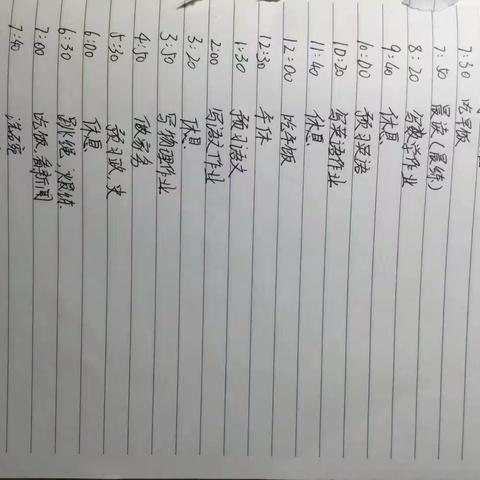 7:30 吃早饭
7:50 晨读(晨练)
8:20 写数学作业
9:40 休息
10:00 预习英语
10:20 写英语作业
11:40 休息
12:00 吃午饭
12:30 午休
1:30 预习语文
2:00 写语文作业
3:20 休息
3:50 写物理作业
4:50 做家务
5:30 预习政、史
6:00 休息
6:30 跳绳、锻炼
7:00 吃饭,看新闻
7:40 洗澡